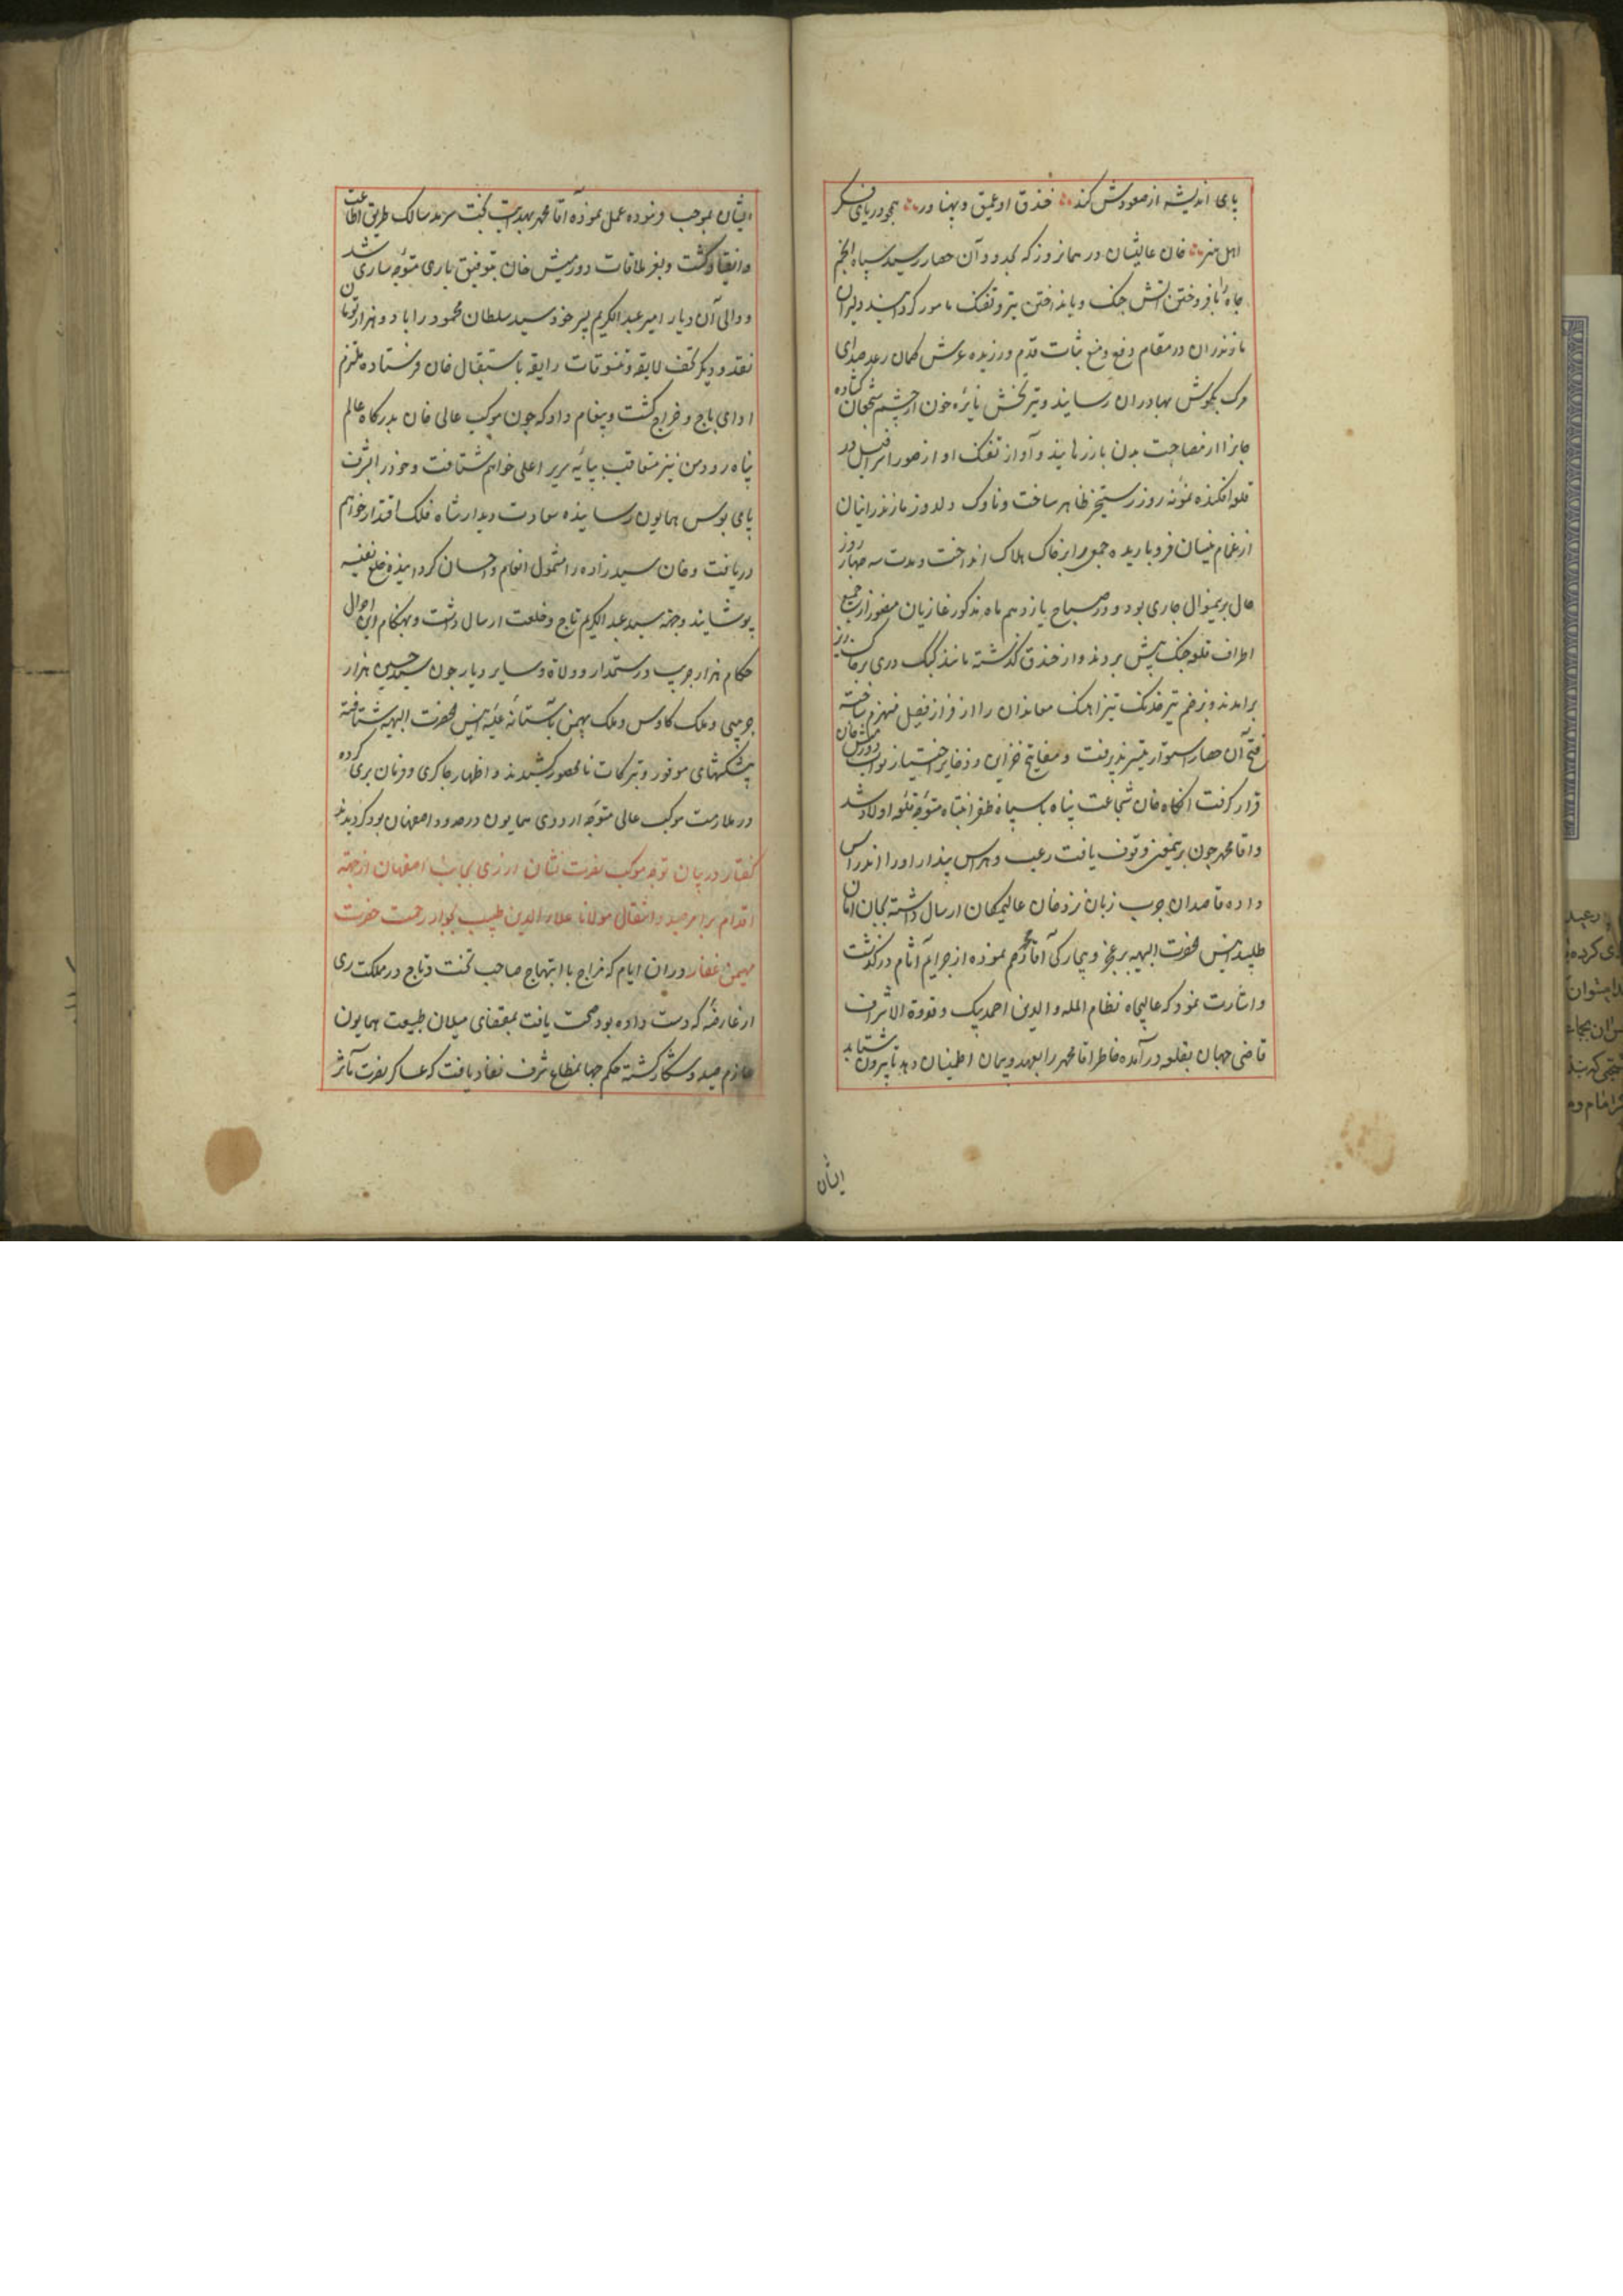 پای اندیشه از صعودش کند خندق او عمیق و پهناور همچو دریای فکر
اهل هنر خان عالیشان در همانروز که بحدود آن حصار رسید سپاه انجم
جاه را بافروختن آتش جنک و بانداختن تیر و تفنک مامور کردانید و دلیران
مازندران در مقام دفع و منع ثبات قدم ورزیده غرش کمان رعد صدای
مرک بکوش بهادران رسانید و تیر خون از چشم شجعان کشاده
جانرا از مصاحبت بدن باز رهانید و آواز تفنک او از صور اسرافیل در
قلعه افکنده نمونه روز رستخیز ظاهر ساخت و ناوک دلدوز مازندرانیان
از غمام نیسان فرو باریده جمعی را بر خاک هلاک انداخت و مدت سه چهار روز
حال برینمنوال جاری بود و در صباح یازدهم ماه مذکور غازیان مظفر از جمیع
اطراف قلعه جنک پیش بردند و از خندق کذشته مانند کبک دری بر خاکریز
برامدند و بزخم تیر خدنک تیز اهنک معاندان را از فراز فصیل منهزم ساخته
فتح آن حصار استوار تیسیر پذیرفت و مفاتیح خزاین و ذخایر باختیار نواب دورمش خان
قرار کرفت انکاه خان شجاعت پناه با سپاه ظفر انتباه متوجه قلعه اولاد شد
و اقا محمد چون برینمعنی وقوف یافت رعب و هراس پندار او را اندراس
داده قاصدان چرب زبان نزد خان عالیمکان ارسال داشته بجان امان
طلبید انیس الحضرت البهیه بر عجز و بیچارکی آقا محمد رحم نموده از جرایم آثام در کذشت
و اشارت نمود که عالیجاه نظام المله و الدین احمد بیک و قدوة الاشراف
قاضی جهان بقلعه در آمده خاطر اقا محمد را بعهد و پیمان اطمینان دهد تا بیرون شتابد
ایشان
ایشان بموجب فرموده عمل نموده آقا محمد بهدایت بخت سرمد سالک طریق اطاعت
و انقیاد کشت و بعز ملاقات دورمیش خان بتوفیق باری متوجه ساری شد
و والی آن دیار امیر عبد الکریم پسر خود سید سلطان محمود را با دو هزار تومان
نقد و دیکر تحف لایقه و تنسوقات رایقه باستقبال خان فرستاده ملتزم
ادای باج و خراج کشت و پیغام داد که چون موکب عالی خان بدرکاه عالم
پناه رود من نیز متعاقب بپایه سریر اعلی خواهم شتافت و خود را بشرف
پای بوس همایون رسانیده سعادت دیدار شاه فلک اقتدار خواهم
دریافت و خان سید زاده را مشمول انعام و احسان کردانیده خلع نفیسه
پوشانید و جهة سید عبد الکریم تاج و خلعت ارسال داشت و بهنکام این احوال
حکام هزار جریب و رستمدار و ولاة و سایر دیار چون سید حسین هزار
جریبی و ملک کاوس و ملک بهمن بآستانه علیه انیس الحضرت البهیه شتافته
پیشکشهای موفور و تبرکات نامحصور کشیدند و اظهار چاکری و فرمان بری کرده
در ملازمت موکب عالی متوجه اردوی همایون در حدود اصفهان بود کردیدند
کفتار در بیان توجه موکب نصرت نشان ارزی بجانب اصفهان از جهة
اقدام بر امر صید و انتقال مولانا علاء الدین طبیب بجوار رحمت حضرت
مهیمن غفار در ان ایام که مزاج با ابتهاج صاحب تخت و تاج در مملکت ری
از عارضه که دست داده بود صحت یافت بمقتضای میلان طبیعت همایون
عازم صید و شکار کشته حکم جهانمطاع شرف نفاذ یافت که عساکر نصرت مآثر